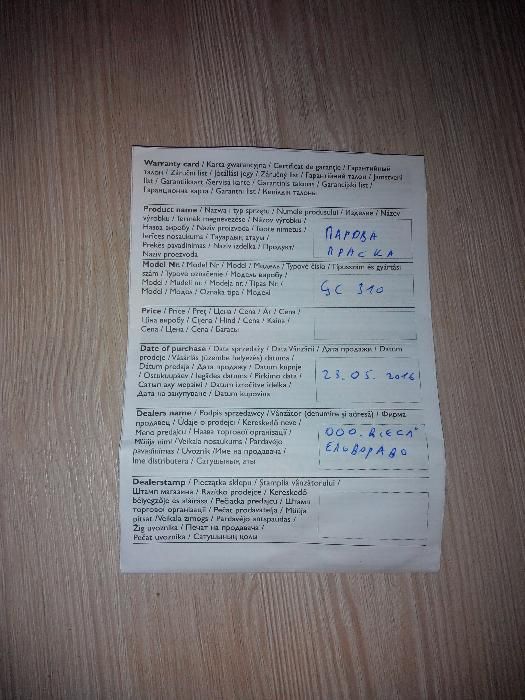 Warranty card / Karta gwarancyjna / Certificat de garanţie / Гарантийный
талон / Záruční list / Jótállási jegy / Záručný list / Гарантійний талон / Jamstveni
list / Garantiikaart /Servisa karte / Garantinis talonas / Garancijski list /
Гаранционна карта / Garantni list / Кепілдік талоны
Product name / Nazwa i typ sprzętu / Numele produsului / Изделие / Název
výrobku / Termék megnevezése / Názov výrobku /
Назва виробу / Naziv proizvoda / Toote nimetus /
Ierīces nosaukums / Тауардың атауы /
Prekės pavadinimas / Naziv izdelka / Продукт/
Naziv proizvoda
ПАРОВА
ПРАСКА
Model Nr. / Model Nr / Model / Модель / Typové číslo / Típusszám és gyártási
szám / Typové označenie / Модель виробу /
Model / Mudeli nr. / Modeļa nr. / Tipas Nr /
Model / Модел / Oznaka tipa / Моделі
GC 310
Price / Price / Preţ / Цена / Cena / Ár / Cena /
Ціна виробу / Cijena / Hind / Cena / Kaina /
Cena / Цена / Cena / Бағасы
Date of purchase / Data sprzedaży / Data Vânzării / Дата продажи / Datum
prodeje / Vásárlás (üzembe helyezés) dátuma /
Dátum predaja / Дата продажу / Datum kupnje
/ Ostukuupäev / Iegādes datums / Pirkimo data /
Сатып алу мерзімі / Datum izročitve izdelka /
Дата на закупуване / Datum kupovine
23.05.2016
Dealers name / Podpis sprzedawcy / Vânzător (denumire şi adresă) / Фирма
продавец / Údaje o prodejci / Kereskedő neve /
Meno predajcu / Назва торгової організації /
Müüja nimi /Veikala nosaukums / Pardavėjo
pavadinimas / Uvoznik /Име на продавача /
Ime distributera / Сатушының аты
ООО
ЕЛЬДОРАДО
Dealerstamp / Pieczątka sklepu / Ştampila vânzătorului /
Штамп магазина / Razítko prodejce / Kereskedő
bélyegzője és aláírása / Pečiatka predajcu / Штамп
торгової організації / Pečat prodavatelja / Müüja
pitsat /Veikala zīmogs / Pardavėjo antspaudas /
Žig uvoznika / Печат на продавача /
Pečat uvoznika / Сатушының қолы